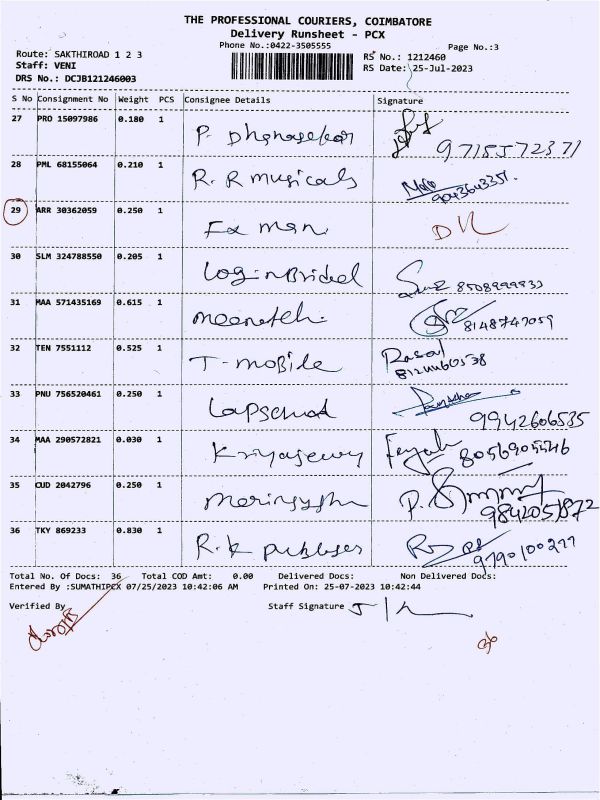 THE PROFESSIONAL COURIERS, COIMBATORE
Delivery Runsheet - PCX
Phone No.:0422-3505555
Page No.:3
Route: SAKTHIROAD 1 2 3
RS No.: 1212460
Staff: VENI
RS Date: 25-Jul-2023
DRS No.: DCJB121246003
S No Consignment No Weight PCS Consignee Details Signature
27 PRO 15097986 0.180 1 P. Dhanasekar
9715572371
28 PML 68155064 0.210 1 R. R musicals
9043643351.
29 ARR 30362059 0.250 1 Ex man.
30 SLM 324788550 0.205 1 Login Bridal
8508999933
31 MAA 571435169 0.615 1
8148747059
32 TEN 7551112 0.525 1 T-mobile
33 PNU 756520461 0.250 1
9942606535
34 MAA 290572821 0.030 1
8056905546
35 CUD 2042796 0.250 1
9842051872
36 TKY 869233 0.830 1 R. K
9790100277
Total No. Of Docs: 36 Total COD Amt: 0.00 Delivered Docs: Non Delivered Docs:
Entered By :SUMATHIPCX 07/25/2023 10:42:06 AM Printed On: 25-07-2023 10:42:44
Verified By Staff Signature